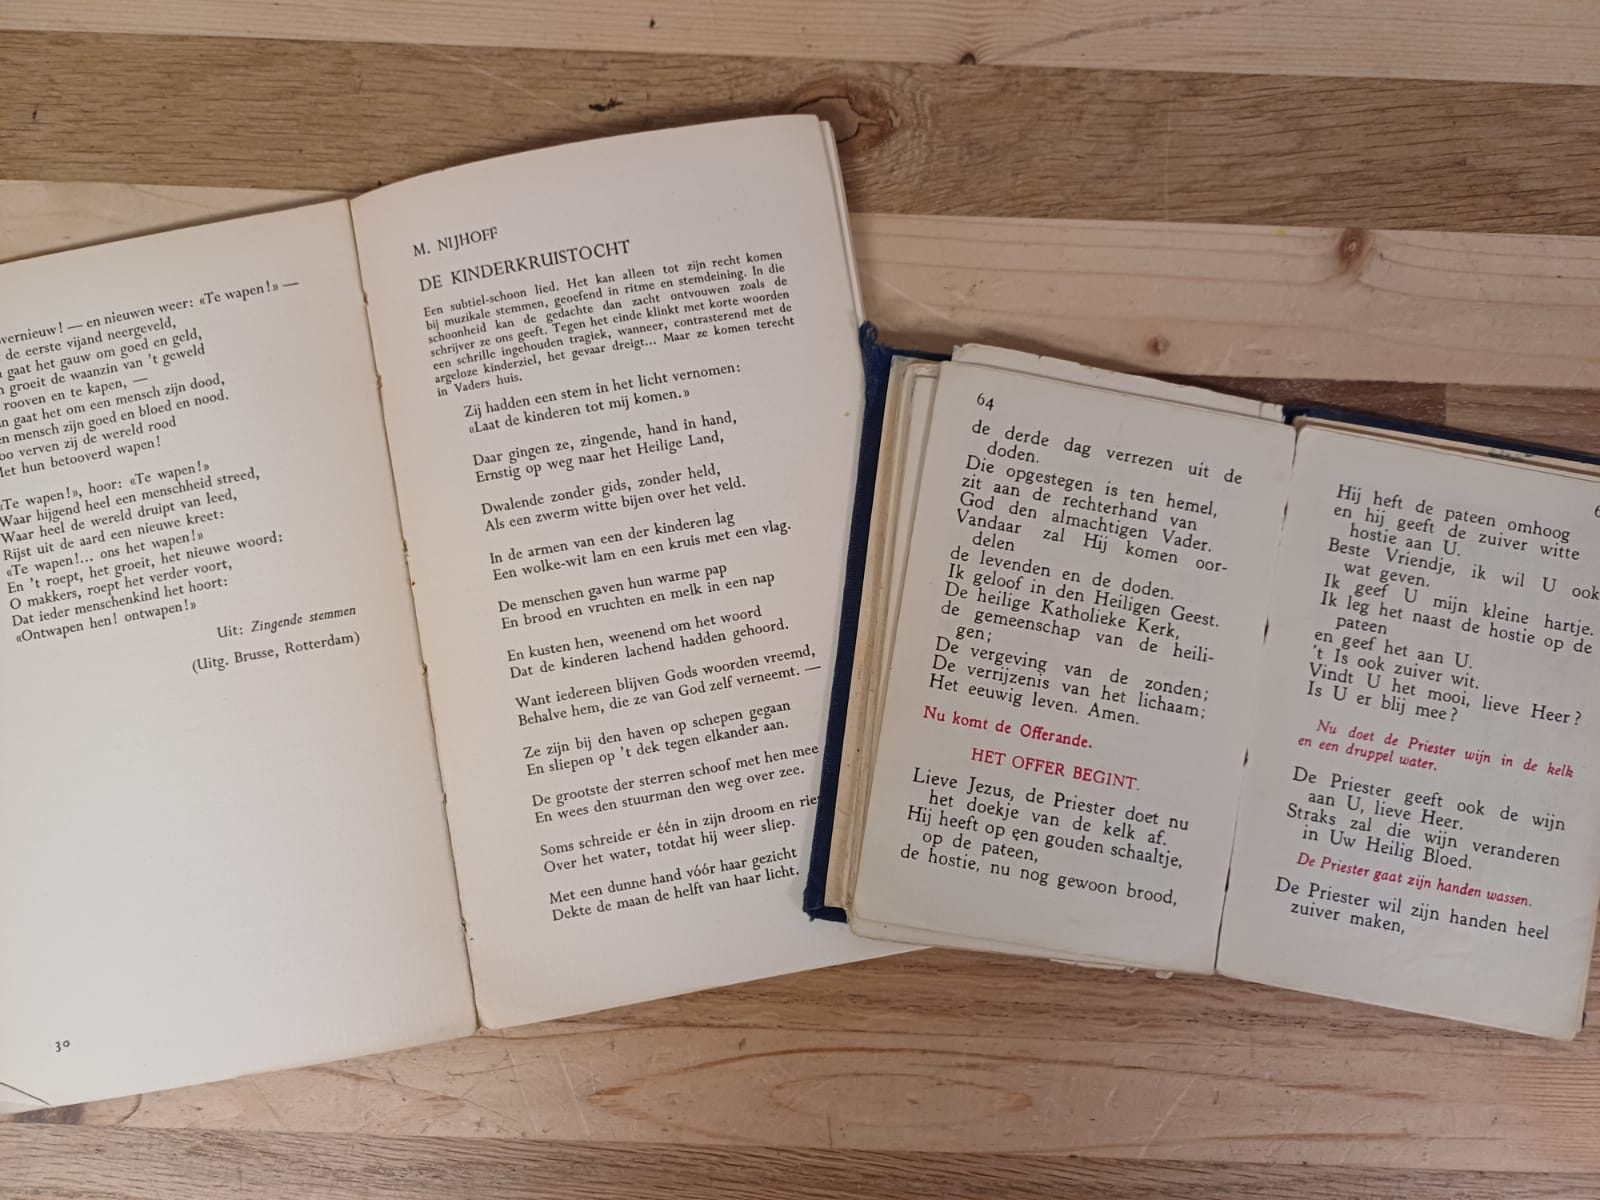 vernieuw! — en nieuwen weer: «Te wapen!» —
de eerste vijand neergeveld,
gaat het gauw om goed en geld,
groeit de waanzin van 't geweld
rooven en te kapen, —
gaat het om een mensch zijn dood,
mensch zijn goed en bloed en nood.
verven zij de wereld rood
hun betooverd wapen!
«Te wapen!», hoor: «Te wapen!»
Waar hijgend heel een menschheid streed,
Waar heel de wereld druipt van leed,
Rijst uit de aard een nieuwe kreet:
«Te wapen!... ons het wapen!»
En 't roept, het groeit, het nieuwe woord:
O makkers, roept het verder voort,
Dat ieder menschenkind het hoort:
«Ontwapen hen! ontwapen!»
Uit: Zingende stemmen
(Uitg. Brusse, Rotterdam)
30
M. NIJHOFF
DE KINDERKRUISTOCHT
Een subtiel-schoon lied. Het kan alleen tot zijn recht komen
bij muzikale stemmen, geoefend in ritme en stemdeining. In die
schoonheid kan de gedachte dan zacht ontvouwen zoals de
schrijver ze ons geeft. Tegen het einde klinkt met korte woorden
een schrille ingehouden tragiek, wanneer, contrasterend met de
argeloze kinderziel, het gevaar dreigt... Maar ze komen terecht
in Vaders huis.
Zij hadden een stem in het licht vernomen:
«Laat de kinderen tot mij komen.»
Daar gingen ze, zingende, hand in hand,
Ernstig op weg naar het Heilige Land,
Dwalende zonder gids, zonder held,
Als een zwerm witte bijen over het veld.
In de armen van een der kinderen lag
Een wolke-wit lam en een kruis met een vlag.
De menschen gaven hun warme pap
En brood en vruchten en melk in een nap
En kusten hen, weenend om het woord
Dat de kinderen lachend hadden gehoord.
Want iedereen blijven Gods woorden vreemd,
Behalve hem, die ze van God zelf verneemt. —
Ze zijn bij den haven op schepen gegaan
En sliepen op 't dek tegen elkander aan.
De grootste der sterren schoof met hen mee
En wees den stuurman den weg over zee.
Soms schreide er één in zijn droom en rie
Over het water, totdat hij weer sliep.
Met een dunne hand vóór haar gezicht
Dekte de maan de helft van haar licht.
64
de derde dag verrezen uit de
doden.
Die opgestegen is ten hemel,
zit aan de rechterhand van
God den almachtigen Vader.
Vandaar zal Hij komen oor-
delen
de levenden en de doden.
Ik geloof in den Heiligen Geest.
De heilige Katholieke Kerk,
de gemeenschap van de heili-
gen;
De vergeving van de zonden;
De verrijzenis van het lichaam;
Het eeuwig leven. Amen.
Nu komt de Offerande.
HET OFFER BEGINT.
Lieve Jezus, de Priester doet nu
het doekje van de kelk af.
Hij heeft op een gouden schaaltje,
op de pateen,
de hostie, nu nog gewoon brood,
6
Hij heft de pateen omhoog
en hij geeft de zuiver witte
hostie aan U.
Beste Vriendje, ik wil U ook
wat geven.
Ik geef U mijn kleine hartje.
Ik leg het naast de hostie op de
pateen
en geef het aan U.
't Is ook zuiver wit.
Vindt U het mooi, lieve Heer?
Is U er blij mee?
Nu doet de Priester wijn in de kelk
en een druppel water.
De Priester geeft ook de wijn
aan U, lieve Heer.
Straks zal die wijn veranderen
in Uw Heilig Bloed.
De Priester gaat zijn handen wassen.
De Priester wil zijn handen heel
zuiver maken,